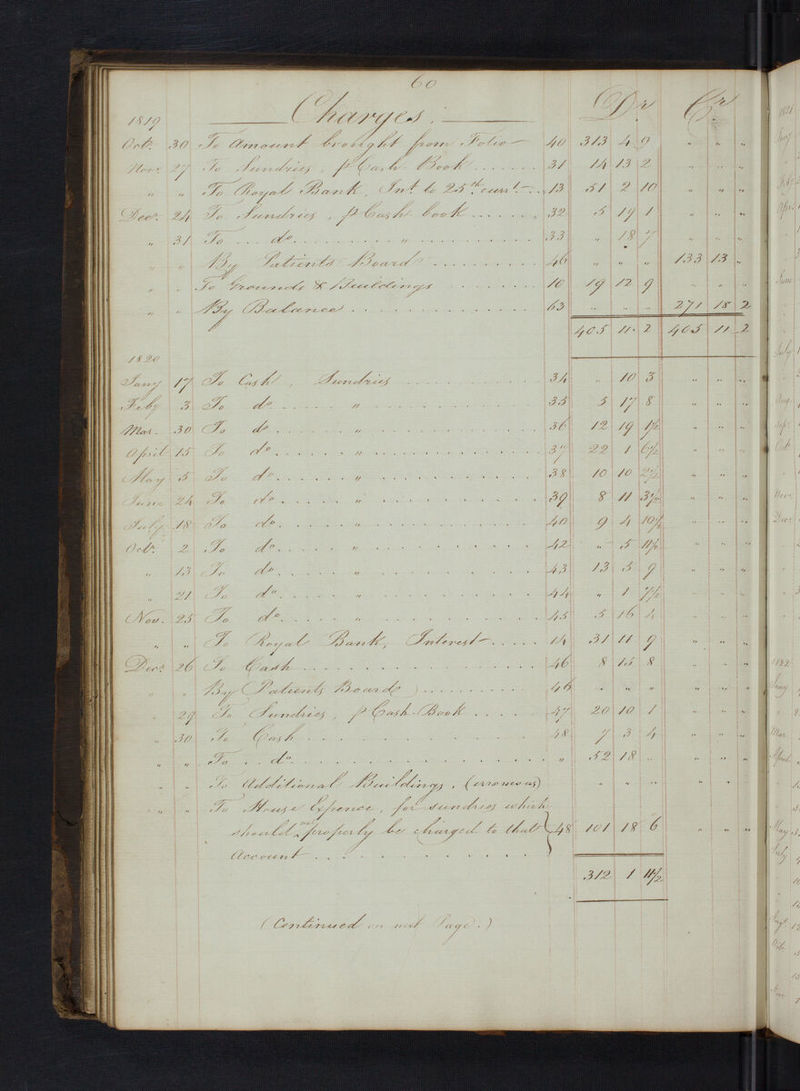 60
1819 Charges. Dr Cr
Octr. 30 To Amount brought from Folio 40 313 4 9 " " "
Novr. 27 To Sundries, p Cash Book 31 14 13 2 " " "
" " To Royal Bank, Int. to 25th. currt. 13 51 2 10 " " "
Decr. 24 To Sundries, p Cash book 32 5 19 1 " " "
" 31 To do. " 33 " 18 7 " " "
" " By Patients Board 46 " " " 133 13 "
" " To Grounds & Buildings 10 19 12 9 " " "
" " By Balance 63 " " " 271 18 2
405 11 2 405 11 2
1820
Jany 17 To Cash, Sundries 34 " 10 3 " " "
Feby 3 To do " 35 5 17 8 " " "
Mar. 30 To do " 36 12 19 1½ " " "
April 15 To do " 37 22 1 6½ " " "
May 5 To do " 38 10 10 2½ " " "
June 24 To do " 39 8 11 3½ " " "
July 18 To do " 40 9 4 10½ " " "
Octr. 2 To do " 42 " 5 11½ " " "
" 13 To do " 43 13 5 9 " " "
" 21 To do " 44 " 1 7½ " " "
Nov. 25 To do " 45 5 16 4 " " "
" " To Royal Bank, Interest 14 31 11 9 " " "
Decr. 26 To Cash 46 8 15 8 " " "
" " By Patients Board 46 " " " " " "
" 29 To Sundries, p Cash Book 47 20 10 1 " " "
" 30 To Cash 48 7 3 4 " " "
" " To do " 52 18 " " " "
" " To Additional Buildings, (erroneous) " " " " " "
" " To House Expence, for sundries which
should properly be charged to that 48 101 18 6 " " "
Account
312 1 11½
(Continued on next Page.)